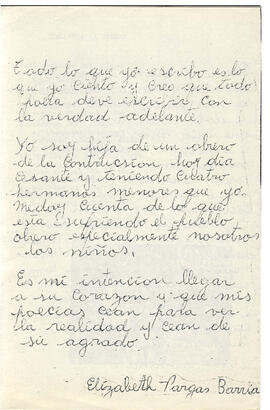 Todo lo que yo escribo es lo
que yo cuento y creo que todo
poeta deve escrivir con
la verdad adelante.
Yo soy hija de un obrero
de la Contrucsion hoy dia
Cesante y teniendo Cuatro
hermanos menores que yo.
Me doy Cuenta de lo que
esta sufriendo el pueblo
obrero especialmente nosotros
los niños.
Es mi intencion llegar
a su Corazon y que mis
poecias cean para ver
la realidad y cean de
su agrado
Elizabeth Vargas Barria